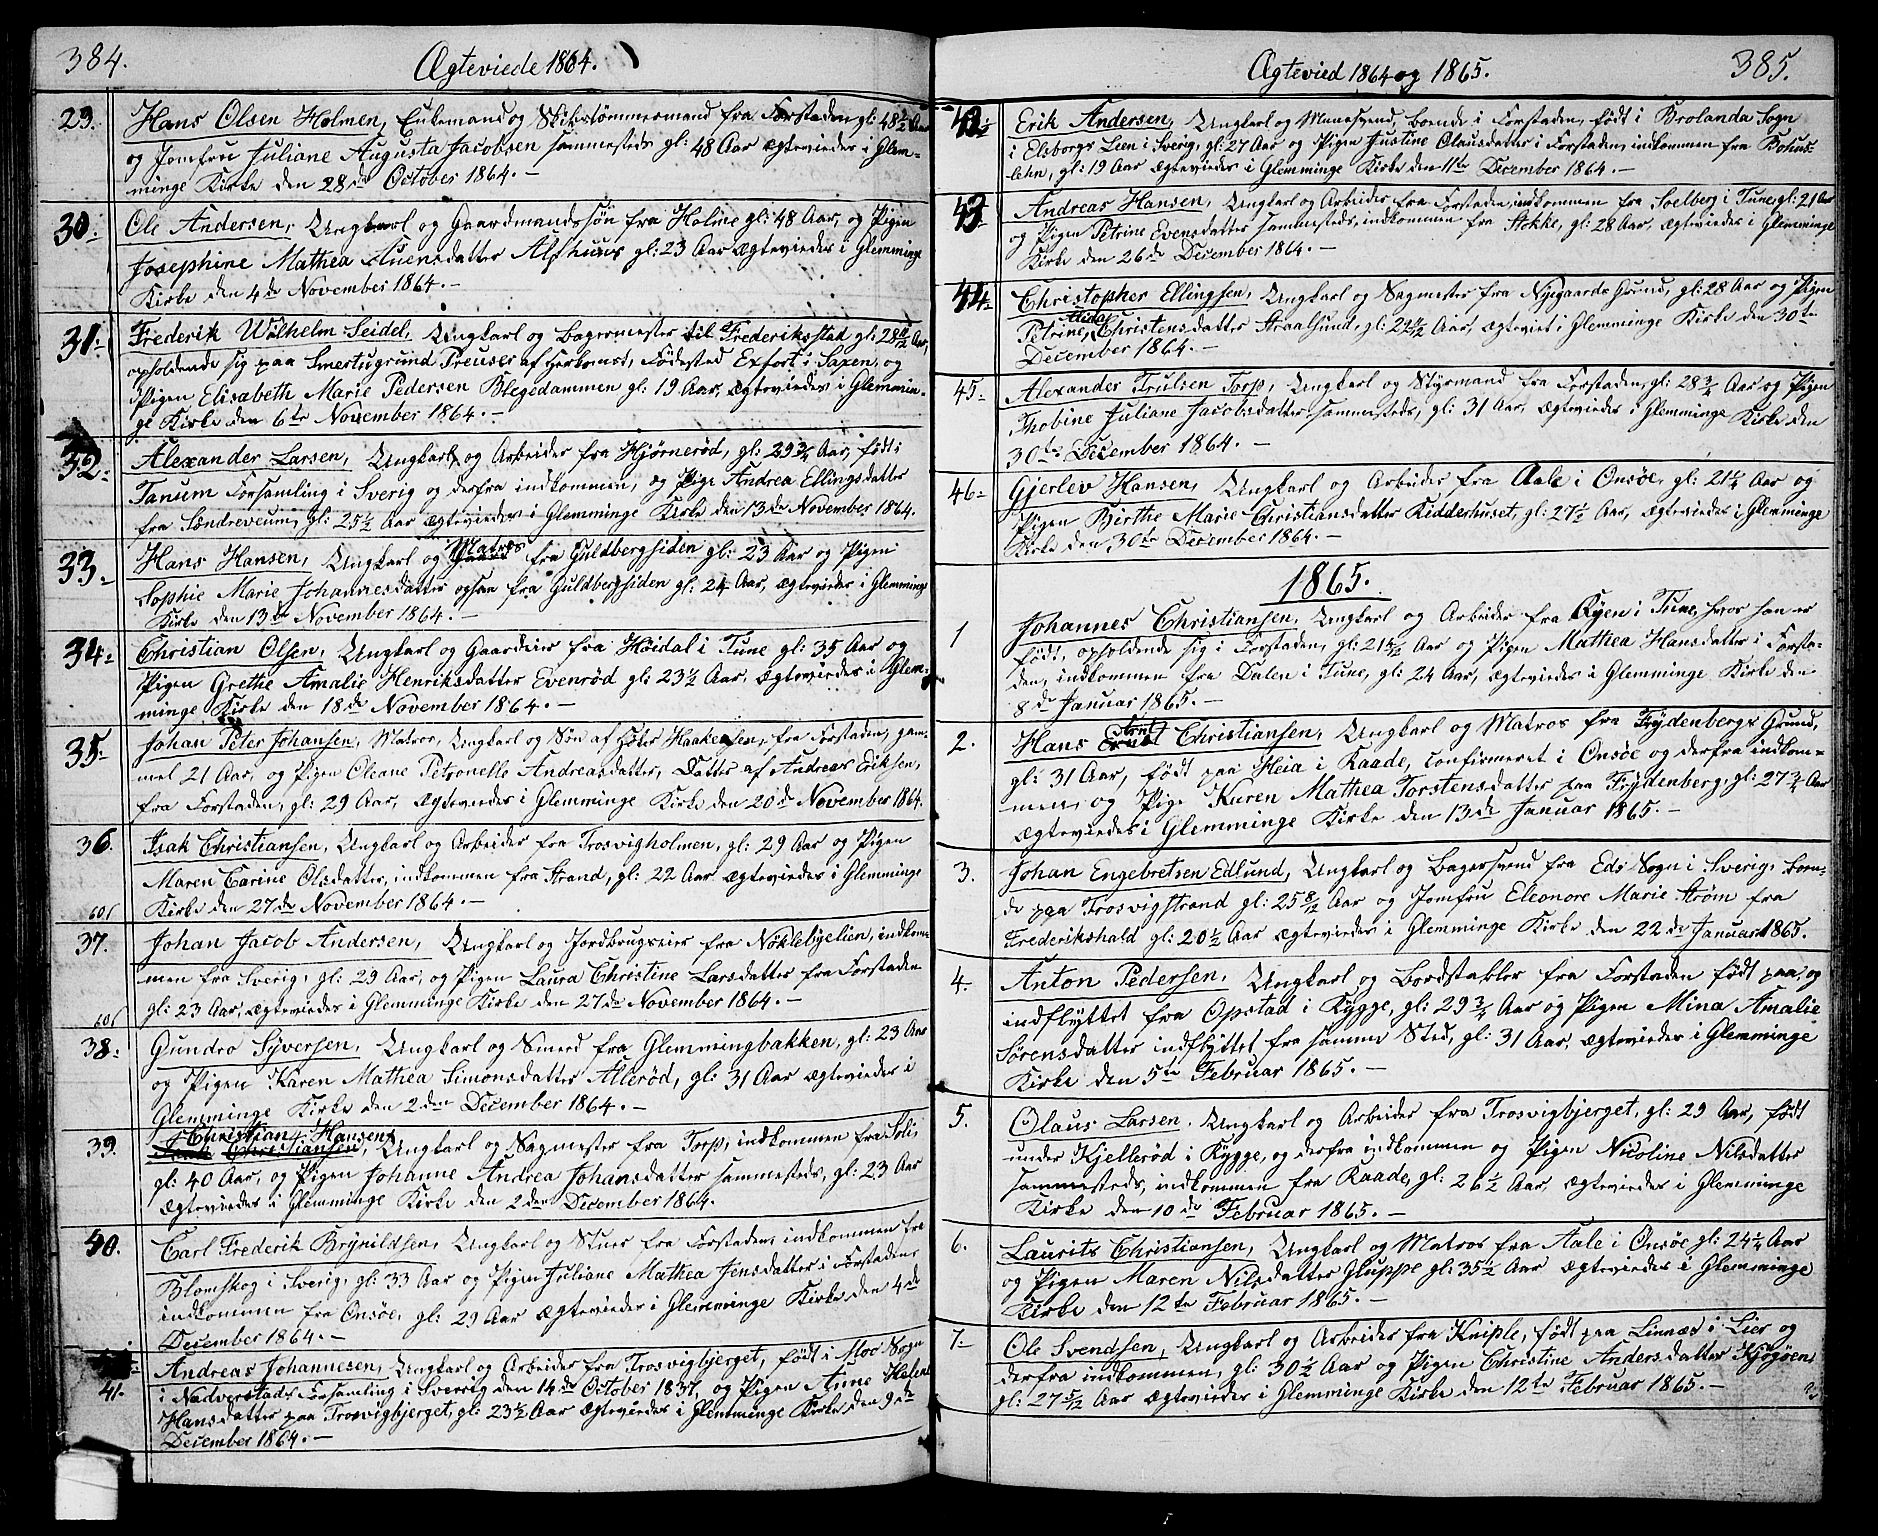 384.
Ægteviede 1864.
29. Hans Olsen Holmen, Enkemand og Skibstømmermand fra Forstaden gl: 48 1/2 Aar
og Jomfru Juliane Augusta Jacobsen sammesteds gl: 48 Aar ægteviedes i Glem-
minge Kirke den 28de October 1864. -
30. Ole Andersen, Ungkarl og Gaardmandssøn fra Holme gl: 48 Aar, og Pigen
Josephine Mathea Auensdatter Alshuus gl: 23 Aar ægteviedes i Glemminge
Kirke den 4de November 1864. -
31. Frederik Wilhelm Seidel, Ungkarl og Bagermester til Frederiksstad gl: 28 Aar,
opholdende sig paa Smertugrund Preuser af Herkomst, Fødested Exfort i Saxen, og
Pigen Elisabeth Marie Pedersen Blegedammen gl: 19 Aar, ægteviedes i Glemmin-
ge Kirke den 6te November 1864. -
32. Alexander Larsen, Ungkarl og Arbeider fra Hjørnerød, gl: 29 3/4 Aar, født i
Tanum Forsamling i Sverig og derfra indkommen, og Pige Andrea Ellingsdatter
fra Søndreveum, gl: 25 1/2 Aar ægteviedes i Glemminge Kirke den 13de November 1864.
33. Hans Hansen, Ungkarl og Matros fra Guldbergsiden gl: 23 Aar og Pigen
Sophie Marie Johannesdatter ogsaa fra Guldbergsiden gl: 24 Aar, ægteviedes i Glemminge
Kirke den 13de November 1864. -
34. Christian Olsen, Ungkarl og Gaardeier fra Høidal i Tune gl: 35 Aar og
Pigen Grethe Amalie Henriksdatter Evenrød gl: 23 1/2 Aar, ægteviedes i Glem-
minge Kirke den 18de November 1864. -
35. Johan Peter Johansen, Matros, Ungkarl og Søn af Peter Haakensen, fra Forstaden, gam-
mel 21 Aar, og Pigen Oleane Petronelle Andreasdatter, Datter af Andreas Eriksen,
fra Forstaden, gl: 29 Aar, ægteviedes i Glemminge Kirke den 20de November 1864.
36. Isak Christiansen, Ungkarl og Arbeider fra Trosvigholmen, gl: 29 Aar og Pigen
Maren Carine Olsdatter, indkommen fra Strand, gl: 22 Aar ægteviedes i Glemminge
Kirke den 27de November 1864. -
37. Johan Jacob Andersen, Ungkarl og Jordbrugseier fra Nøklebyelien, indkom-
men fra Sverig, gl: 29 Aar, og Pigen Laura Christine Larsdatter fra Forstaden
gl: 23 Aar, ægteviedes i Glemminge Kirke den 27de November 1864. -
38. Gundro Syversen, Ungkarl og Smed fra Glemmingbakken, gl: 23 Aar
og Pigen Karen Mathea Simonsdatter Allerød, gl: 31 Aar ægteviedes i
Glemminge Kirke den 2den December 1864. -
Christian Hansen
39. Isak Christiansen, Ungkarl og Sagmester fra Torp, indkommen fra Soli,
gl: 40 Aar, og Pigen Johanne Andrea Johansdatter sammesteds, gl: 23 Aar
ægteviedes i Glemminge Kirke den 2den December 1864.
40. Carl Frederik Brynildsen, Ungkarl og Stuer fra Forstaden, indkommen fra
Blomskog i Sverig, gl: 33 Aar og Pigen Juliane Mathea Jensdatter i Forstaden
indkommen fra Onsøe, gl: 29 Aar ægteviedes i Glemminge Kirke den 4de
December 1864. -
41. Andreas Johannesen, Ungkarl og Arbeider fra Trosvigbjerget, født i Moe Sogn
i Nadverstads Forsamling i Sverig den 14de October 1837, og Pigen Anne Helene
Hansdatter paa Trosvigbjerget, gl: 23 1/2 Aar ægteviedes i Glemminge Kirke den 9de
December 1864. -
Ægteviede 1864 og 1865.
385.
42. Erik Andersen, Ungkarl og Muursvend, boende i Forstaden, født i Brolanda Sogn
i Elsborgs Leen i Sverig, gl: 27 Aar og Pigen Justine Olausdatter i Forstaden, indkommen fra Bohus-
lehn, gl: 19 Aar ægteviedes i Glemminge Kirke den 11te December 1864. -
43. Andreas Hansen, Ungkarl og Arbeider fra Forstaden, indkommen fra Soelberg i Tune, gl: 21 Aar
og Pigen Petrine Evensdatter sammesteds, indkommen fra Stokke, gl: 28 Aar, ægteviedes i Glemminge
Kirke den 26de December 1864. -
44. Christopher Ellingsen, Ungkarl og Sagmester fra Nygaards Grund, gl: 28 Aar og Pigen
Petrine Christensdatter Straalsund, gl: Aar, ægteviet i Glemminge Kirke den 30te
December 1864. -
45. Alexander Trulsen Torp, Ungkarl og Styrmand fra Forstaden, gl: 28 3/4 Aar og Pigen
Thobine Juliane Jacobsdatter sammesteds, gl: 31 Aar, ægteviedes i Glemminge Kirke den
30te December 1864. -
46. Gjerlev Hansen, Ungkarl og Arbeider fra Aale i Onsøe, gl: 21 1/4 Aar og
Pigen Birthe Marie Christiansdatter Kidderhuset, gl: 27 1/2 Aar, ægteviedes i Glemminge
Kirke den 30te December 1864. -
1865.
1 Johannes Christiansen, Ungkarl og Arbeider fra Ryen i Tune, hvor han er
født, opholdende sig i Forstaden, gl: 21 5/12 Aar og Pigen Mathea Hansdatter i Forsta-
den, indkommen fra Dalen i Tune, gl: 24 Aar, ægteviedes i Glemminge Kirke den
8de Januar 1865. -
2. Hans Arnt Christiansen, Ungkarl og Matros fra Frydenbergs Grund,
gl: 31 Aar, født paa Heia i Raade, confirmeret i Onsøe og derfra indkom-
men, og Pige Karen Mathea Torstensdatter paa Frydenberg, gl: 27 3/4 Aar
ægteviedes i Glemminge Kirke den 13de Januar 1865. -
3. Johan Engebretsen Edlund, Ungkarl og Bagersvend fra Eds Sogn i Sverig, boen-
de paa Trosvigstrand gl: 25 8/12 Aar og Jomfru Eleonore Marie Strøm fra
Frederikshald gl: 20 1/2 Aar ægteviedes i Glemminge Kirke den 22de Januar 1865.
4. Anton Pedersen, Ungkarl og Bordstabler fra Forstaden født paa og
indflyttet fra Opstad i Rygge, gl: 29 3/4 Aar og Pigen Mina Amalie
Sørensdatter indflyttet fra samme Sted, gl: 31 Aar, ægteviedes i Glemminge
Kirke den 5te Februar 1865. -
5. Olaus Larsen, Ungkarl og Arbeider fra Trosvigbjerget, gl: 29 Aar, født
under Kjellerød i Rygge, og derfra indkommen og Pigen Nicoline Nilsdatter
sammesteds, indkommen fra Raade, gl: 26 1/2 Aar, ægteviedes i Glemminge
Kirke den 10de Februar 1865. -
6. Laurits Christiansen, Ungkarl og Matros fra Aale i Onsøe gl: 24 1/4 Aar
og Pigen Maren Nilsdatter Gluppe gl: 35 1/2 Aar ægteviedes i Glemminge
Kirke den 12te Februar 1865. -
7. Ole Svendsen, Ungkarl og Arbeider fra Kniple, født paa Linnæs i Lier og
derfra indkommen, gl: 30 1/2 Aar og Pigen Christine Andersdatter Kjøgøen
gl: 27 5/12 Aar ægteviedes i Glemminge Kirke den 12te Februar 1865. -